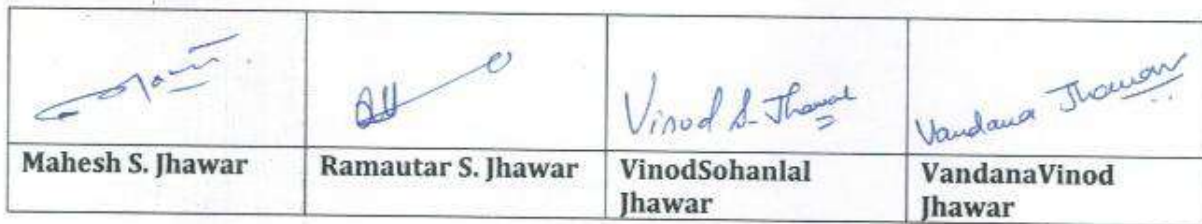 Vinod S. Jhawar
Vandana Jhawar
Mahesh S. Jhawar
Ramautar S. Jhawar
VinodSohanlal
Jhawar
VandanaVinod
Jhawar